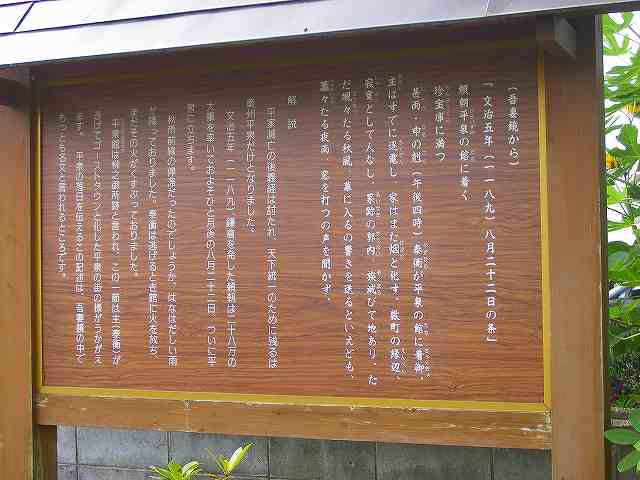 （吾妻鏡から）
「文治五年（一一八九）八月二十二日の条」
頼朝平泉の館に着く
珍宝庫に満つ
甚雨・申の刻（午後四時）泰衡が平泉の館に着御。
主はすでに逐電し 家はまた烟と化す。数町の縁辺、
寂寞として人なし。累跡の郭内 㳒滅びて地あり た
だ颯々たる秋風、幕に入るの響きを送るといえども、
蕭々たる夜雨、窓を打つの声を聞かず。
解　説
平家滅亡の後義経は討たれ、天下統一のために残るは
奥州平泉だけとなりました。
文治五年（一一八九）鎌倉を発した頼朝は二十八万の
大軍を率いておよそひと月後の八月二十二日 ついに平
泉に立ちます。
秋雨前線の停滞だったのでしょうか。はなはだしい雨
が降っておりました。泰衡は逃げるとき館に火を放ち、
まだその火がくすぶっておりました。
平泉館は柳之御所跡と言われ、この一節は主（泰衡）が
逃げてゴーストタウンと化した平泉の街の様がうかがえ
ます。平泉の落日を伝えるこの記述は、吾妻鏡の中で
もっともる文と言われるところです。